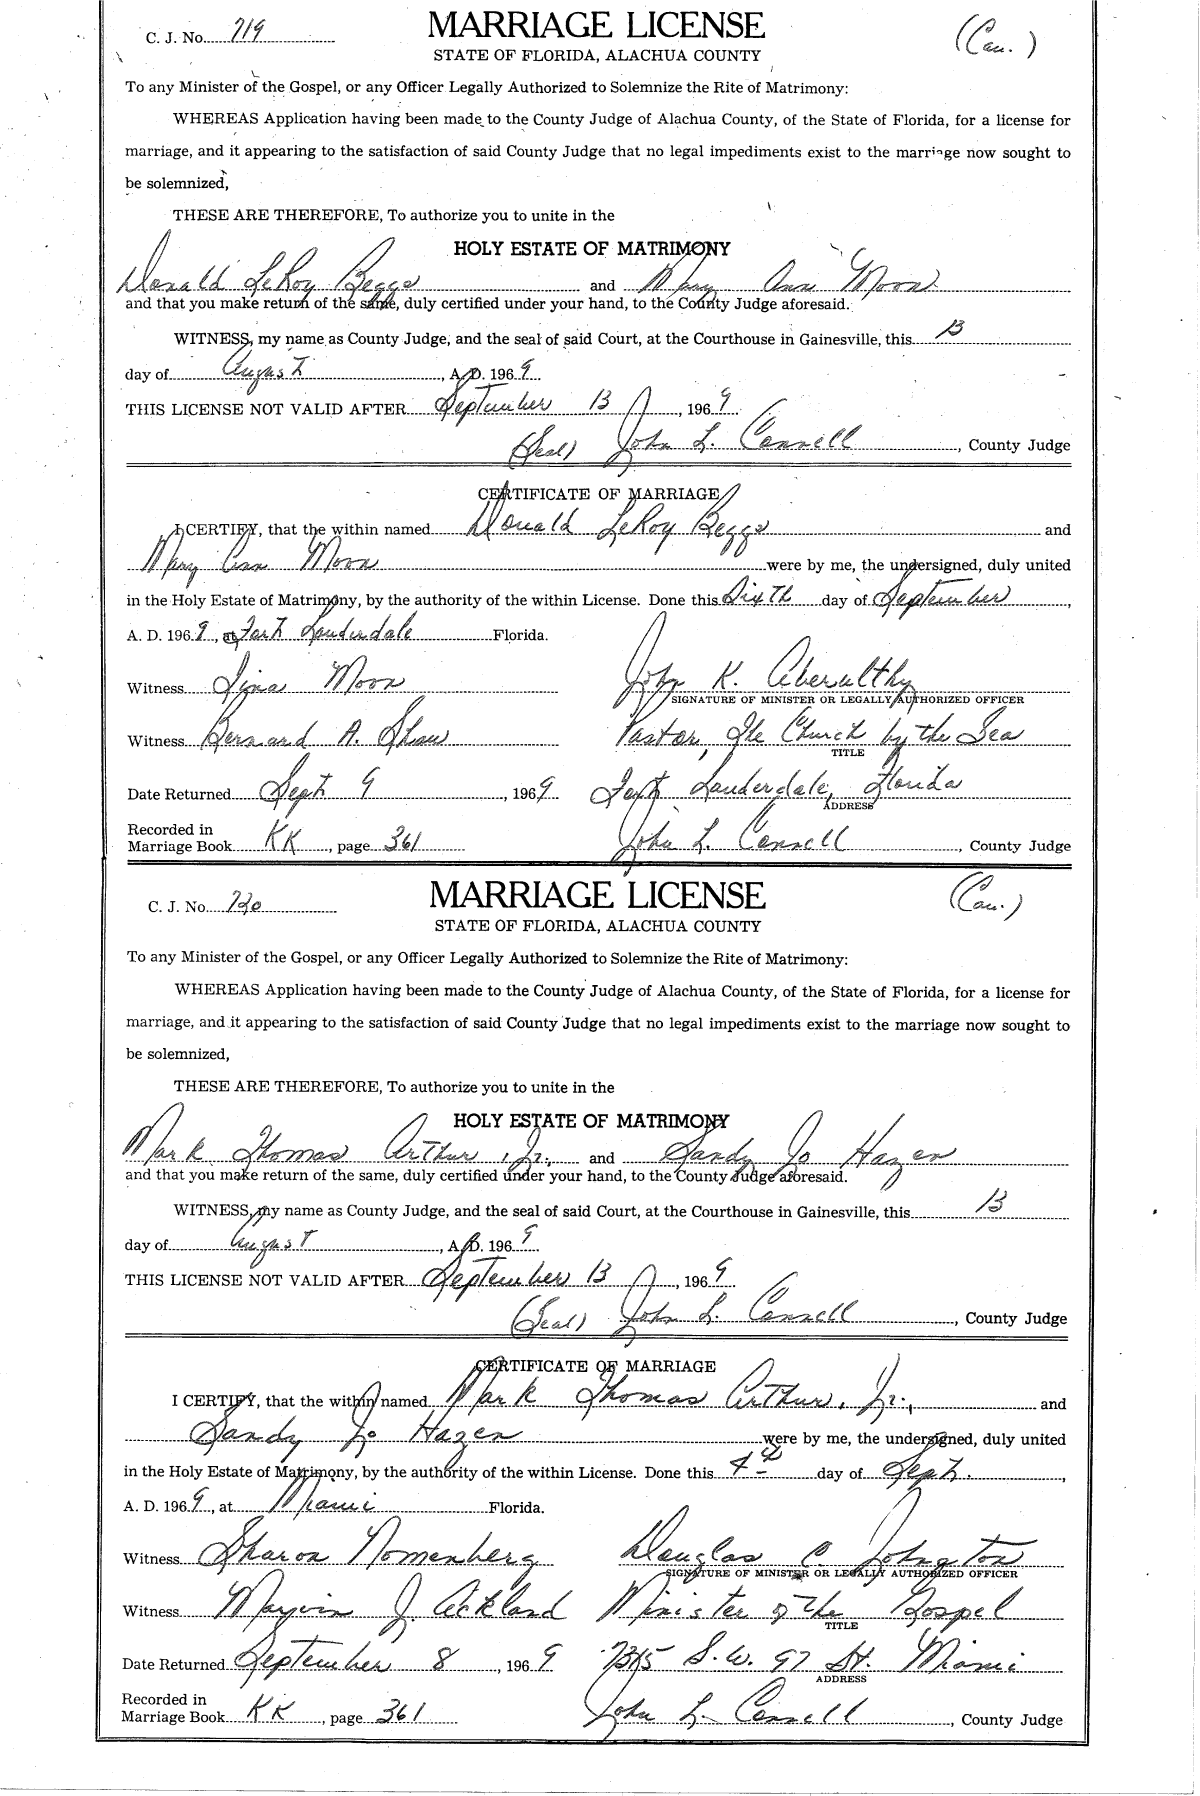 C. J. No. 719
MARRIAGE LICENSE
(Cau.)
STATE OF FLORIDA, ALACHUA COUNTY
To any Minister of the Gospel, or any Officer Legally Authorized to Solemnize the Rite of Matrimony:
WHEREAS Application having been made to the County Judge of Alachua County, of the State of Florida, for a license for
marriage, and it appearing to the satisfaction of said County Judge that no legal impediments exist to the marriage now sought to
be solemnized,
THESE ARE THEREFORE, To authorize you to unite in the
HOLY ESTATE OF MATRIMONY
Donald LeRoy Beggs and Mary Ann Moon
and that you make return of the same, duly certified under your hand, to the County Judge aforesaid.
WITNESS, my name as County Judge, and the seal of said Court, at the Courthouse in Gainesville, this 13
day of August, A. D. 1969
THIS LICENSE NOT VALID AFTER September 13, 1969
(Seal) John L. Connell, County Judge
CERTIFICATE OF MARRIAGE
I CERTIFY, that the within named Donald LeRoy Beggs and
Mary Ann Moon were by me, the undersigned, duly united
in the Holy Estate of Matrimony, by the authority of the within License. Done this Sixth day of September,
A. D. 1969, at Fort Lauderdale Florida.
Witness Lina Moon John K. Aberulthy
SIGNATURE OF MINISTER OR LEGALLY AUTHORIZED OFFICER
Witness Bernard A. Shaw Pastor, The Church by the Sea
TITLE
Date Returned Sept 9, 1969 Fort Lauderdale, Florida
ADDRESS
Recorded in
Marriage Book KK, page 361 John L. Connell, County Judge
C. J. No. 720
MARRIAGE LICENSE
(Cau.)
STATE OF FLORIDA, ALACHUA COUNTY
To any Minister of the Gospel, or any Officer Legally Authorized to Solemnize the Rite of Matrimony:
WHEREAS Application having been made to the County Judge of Alachua County, of the State of Florida, for a license for
marriage, and it appearing to the satisfaction of said County Judge that no legal impediments exist to the marriage now sought to
be solemnized,
THESE ARE THEREFORE, To authorize you to unite in the
HOLY ESTATE OF MATRIMONY
Mark Thomas Arthur, Jr., and Sandy Jo Hazen
and that you make return of the same, duly certified under your hand, to the County Judge aforesaid.
WITNESS, my name as County Judge, and the seal of said Court, at the Courthouse in Gainesville, this 13
day of August, A. D. 1969
THIS LICENSE NOT VALID AFTER September 13, 1969
(Seal) John L. Connell, County Judge
CERTIFICATE OF MARRIAGE
I CERTIFY, that the within named Mark Thomas Arthur, Jr., and
Sandy Jo Hazen were by me, the undersigned, duly united
in the Holy Estate of Matrimony, by the authority of the within License. Done this 4th day of Sept.,
A. D. 1969, at Miami Florida.
Witness Sharon Nomenberg Douglas C. Johnston
SIGNATURE OF MINISTER OR LEGALLY AUTHORIZED OFFICER
Witness Marvin J. Ackland Minister of the Gospel
TITLE
Date Returned September 8, 1969 7315 S.W. 97 St. Miami
ADDRESS
Recorded in
Marriage Book KK, page 361 John L. Connell, County Judge